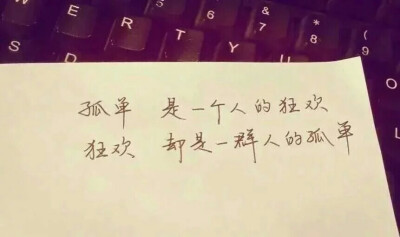 W E R T Y U
6 7 8 9
S D
孤单 是一个人的狂欢
狂欢 却是一群人的孤单